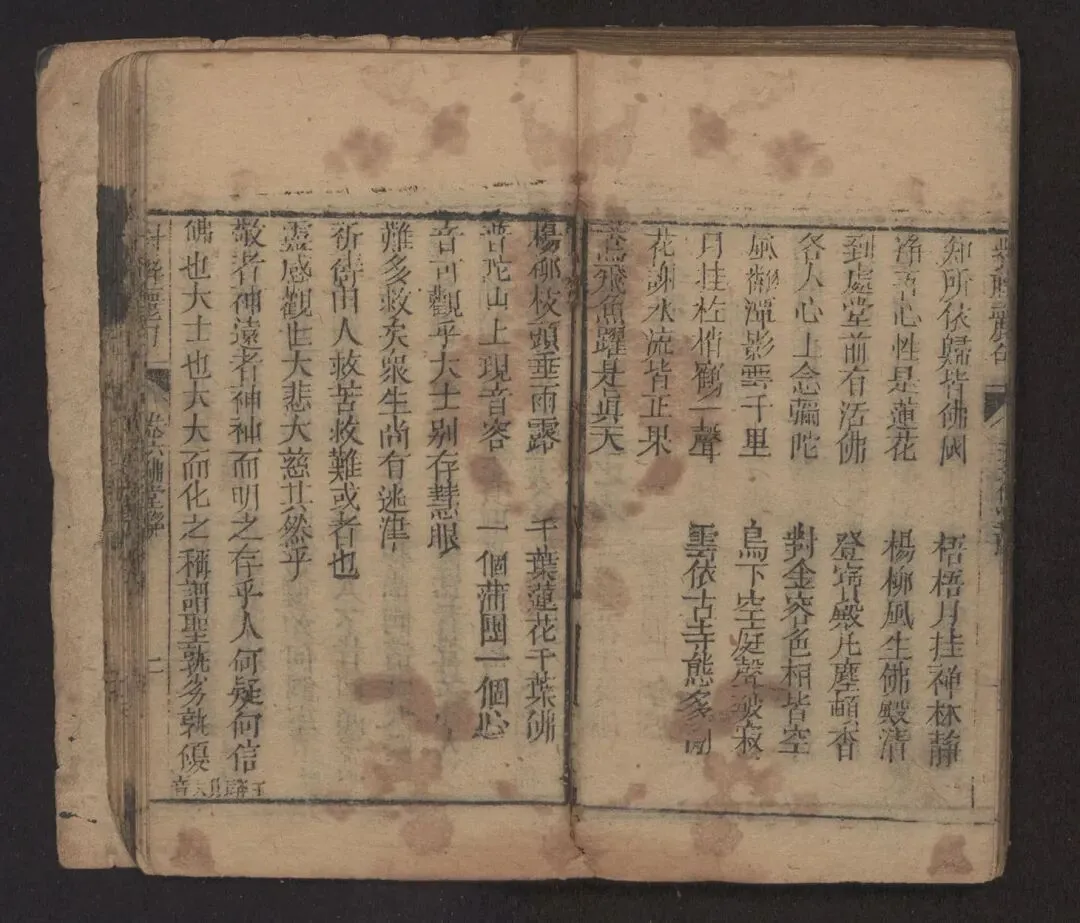 知所依歸皆佛國 梧梧月挂禪林靜
淨吾心性是蓮花 楊柳風生佛殿清
到處堂前有活佛 登寶殿凡塵頓杳
各人心上念彌陀 對金容色相皆空
潭影雲千里 鳥下空庭聲破寂
月挂松梢鶴一聲 雲依古寺態多
花謝水流皆正果
鳶飛魚躍是眞天
楊柳枝頭垂雨露 千葉蓮花千葉佛
普陀山上現音容 一個蒲團一個心
音可觀乎大士别存慧眼
難多救矣衆生尚有迷津
祈儔由人救苦救難或者也
靈感觀世大悲大慈其然乎
敬者神遠者神神而明之存乎人何疑何信
佛也大士也大大而化之稱謂聖孰劣孰優
卷六佛堂聯
二